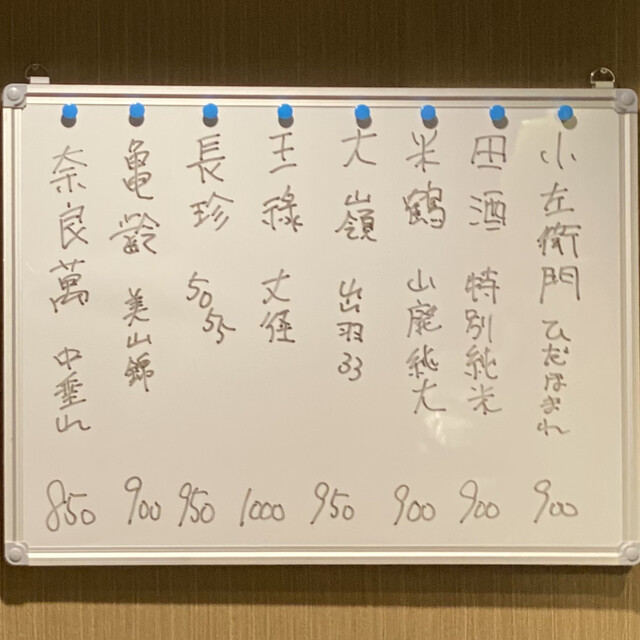 小左衛門 ひだほまれ 900
田酒 特別純米 900
米鶴 山廃純大 900
大嶺 出羽33 950
王祿 丈径 1000
長珍 5055 950
亀齢 美山錦 900
奈良萬 中垂れ 850